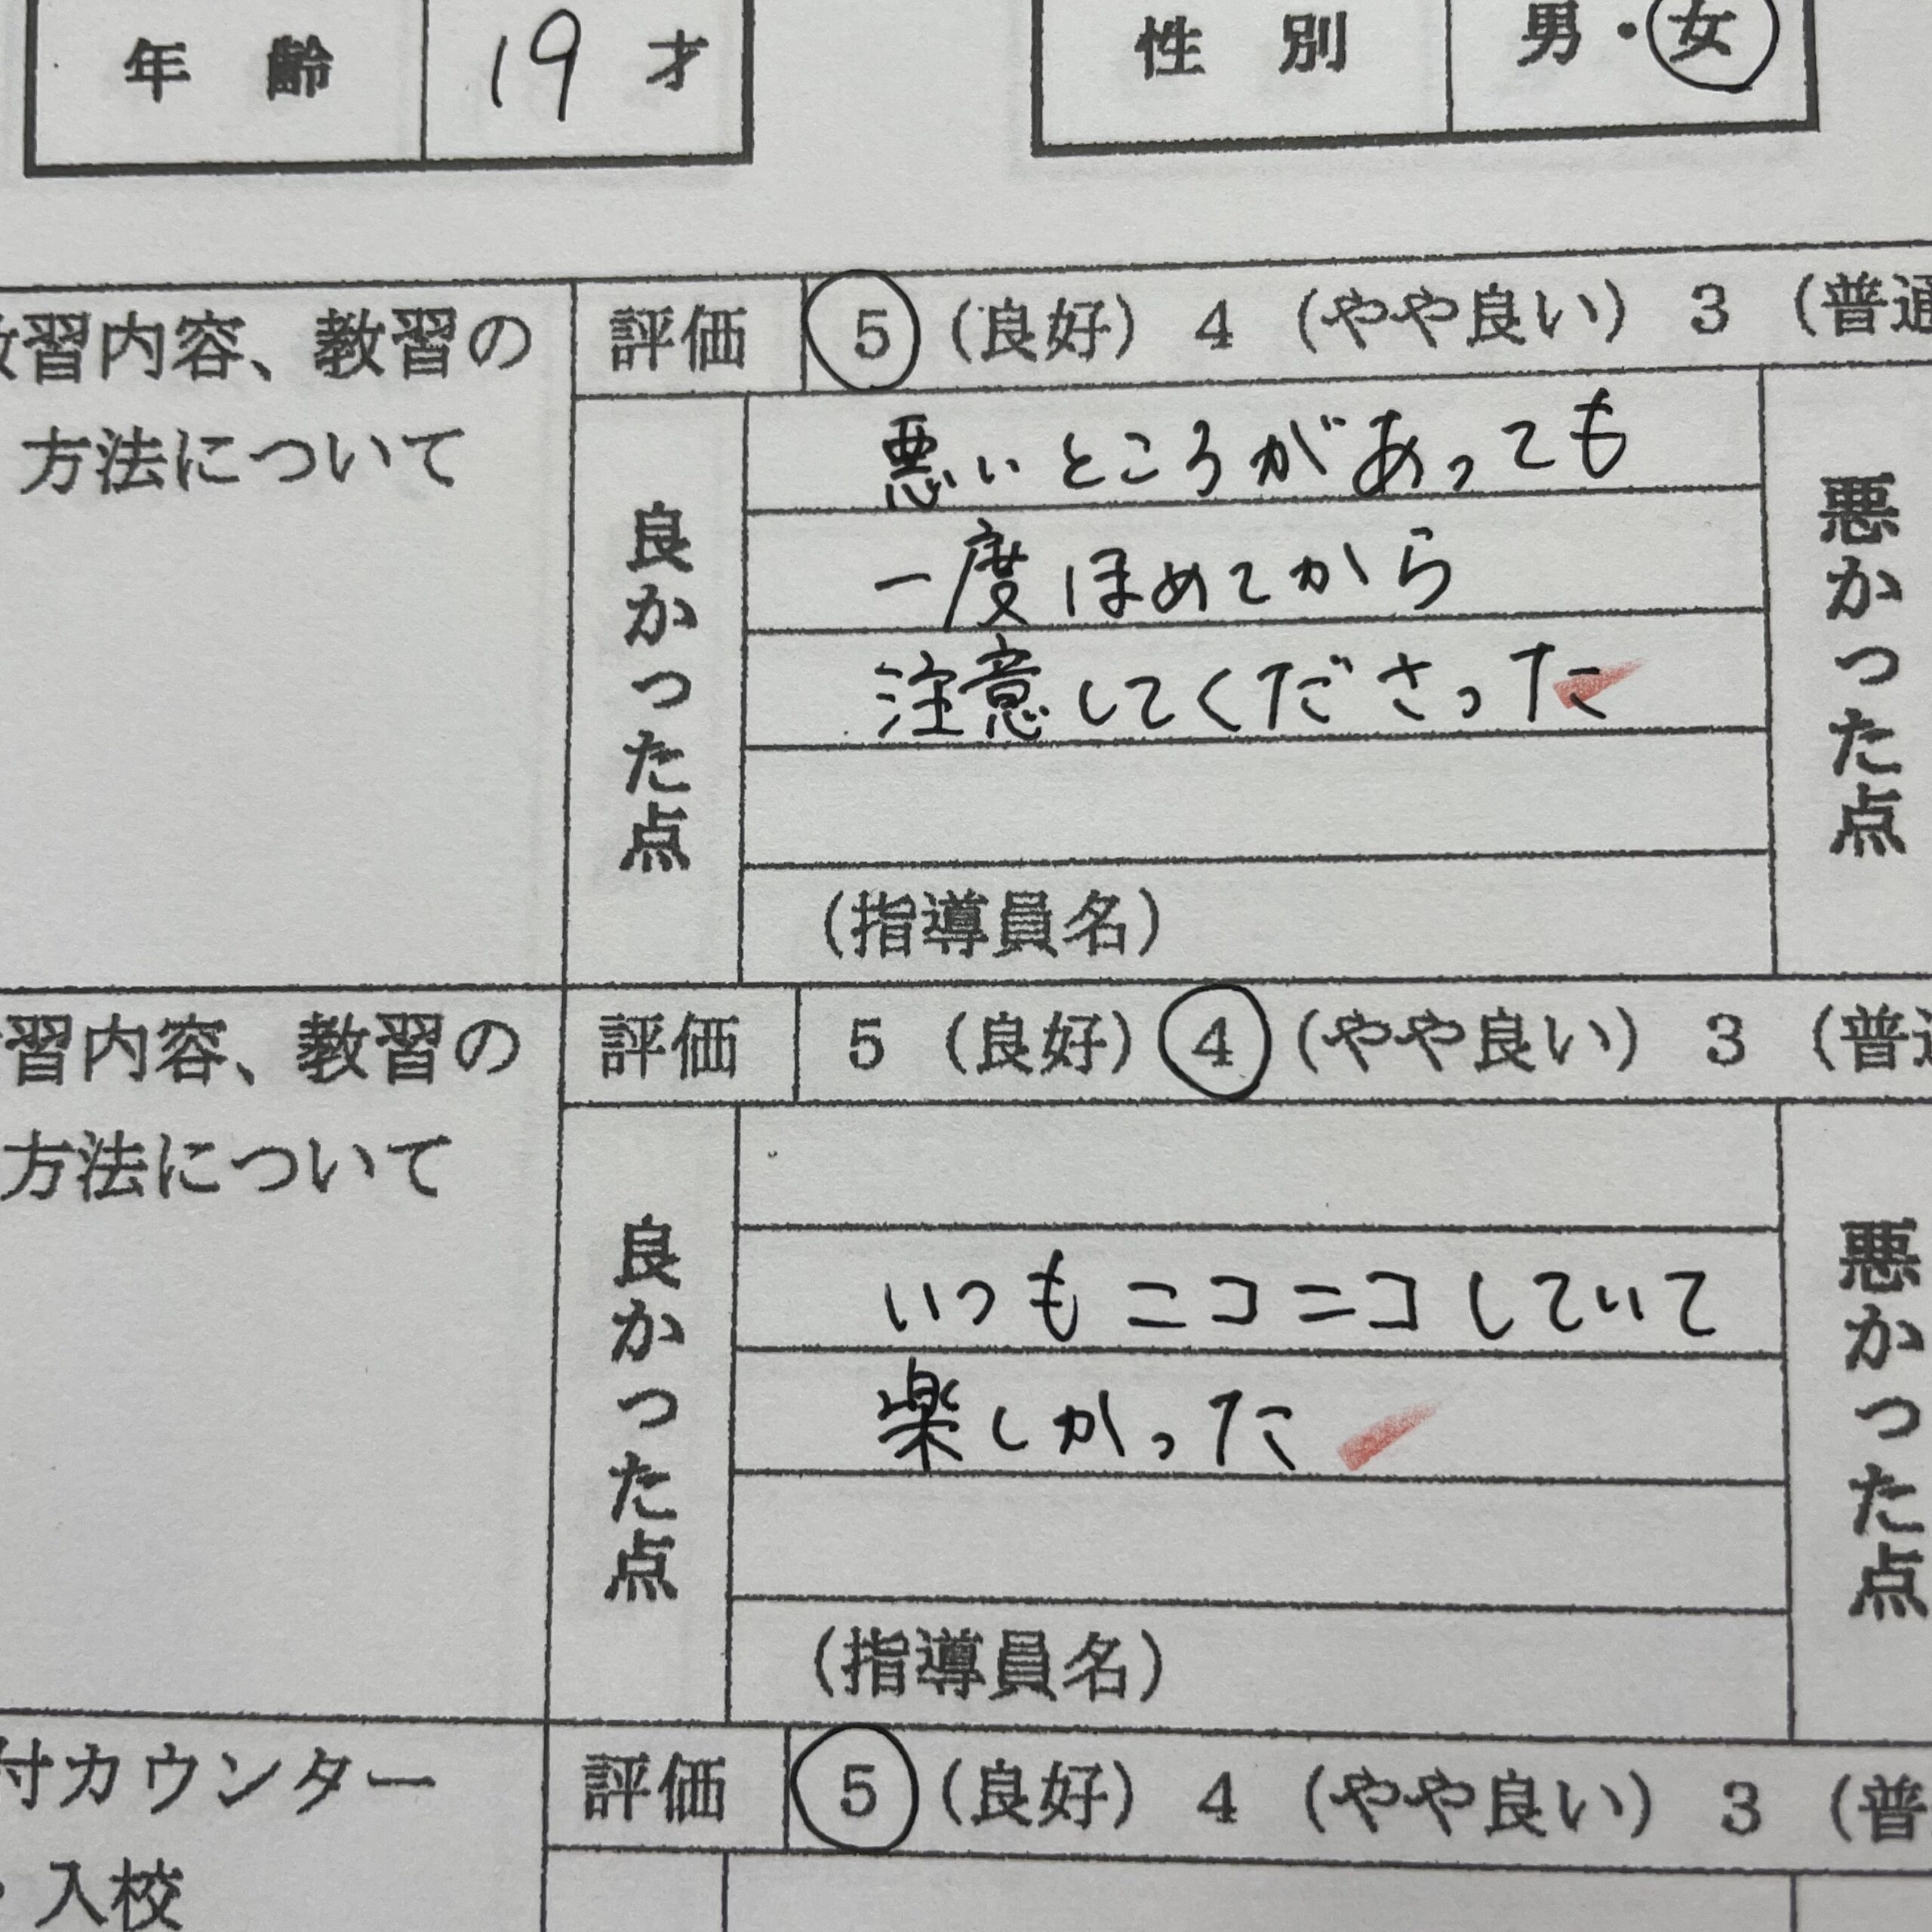 年齢 19 才 性別 男・女
教習内容、教習の 評価 5 (良好) 4 (やや良い) 3 (普通
方法について
良かった点
悪いところがあっても
一度ほめてから
注意してくださった
(指導員名)
悪かった点
習内容、教習の 評価 5 (良好) 4 (やや良い) 3 (普通
方法について
良かった点
いつもニコニコしていて
楽しかった
(指導員名)
悪かった点
付カウンター 評価 5 (良好) 4 (やや良い) 3 (普
・入校